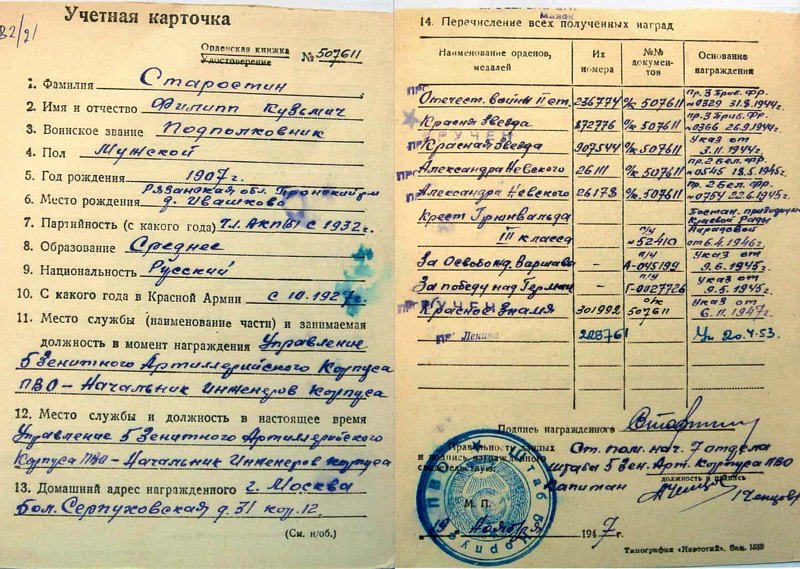 Учетная карточка
82/21
Орденская книжка
Удостоверение
№ 507611
1. Фамилия Старостин
2. Имя и отчество Филипп Кузьмич
3. Воинское звание Подполковник
4. Пол Мужской
5. Год рождения 1907 г.
Рязанская обл. Пронский р-н
6. Место рождения д. Ивашково
7. Партийность (с какого года) Чл. ВКП(б) с 1932 г.
8. Образование Среднее
9. Национальность Русский
10. С какого года в Красной Армии с 10.1927 г.
11. Место службы (наименование части) и занимаемая
должность в момент награждения Управление
5 Зенитного Артиллерийского Корпуса
ПВО – Начальник Инженеров Корпуса
12. Место службы и должность в настоящее время
Управление 5 Зенитного Артиллерийского
Корпуса ПВО – Начальник Инженеров Корпуса
13. Домашний адрес награжденного г. Москва
Бол. Серпуховская д. 31 кор. 12
(См. н/об.)
14. Перечисление всех полученных наград
Наименование орденов, медалей
Их номера
№№ документов
Основание награждения
Отечест. войны II ст. 236774 о/к 507611 пр. 3 Приб. Фр. №0329 31.8.1944г.
Красная Звезда 872776 о/к 507611 пр. 3 Приб. Фр. №0366 26.9.1944г.
Красная Звезда 907544 о/к 507611 Указ от 3.11.1944г.
Александра Невского 26111 о/к 507611 пр. 2 Бел. Фр. №0545 18.5.1945г.
Александра Невского 26178 о/к 507611 пр. 2 Бел. Фр. №0754 22.6.1945г.
Крест Грюнвальда
III класса п/у №52410 Постан. президиума Краевой Рады Народовой от 6.4.1946г.
За Освобожд. Варшавы – А-045199 Указ от 9.6.1945г.
За победу над Герман. – п/у Г-0027726 Указ от 9.5.1945г.
Красное Знамя 301992 о/к 507611 Указ от 6.11.1947г.
Ленина 228761 Ук. 20.4.53.
Подпись награжденного
Правильность данных
и подпись награжденного
свидетельствую:
Ст. пом. нач. 7 отдела
штаба 5 Зен. Арт. Корпуса ПВО
Капитан
должность и подпись
/Ченцов/
М. П.
19 Ноября 1947 г.
Типография «Известий». Зак. 1589